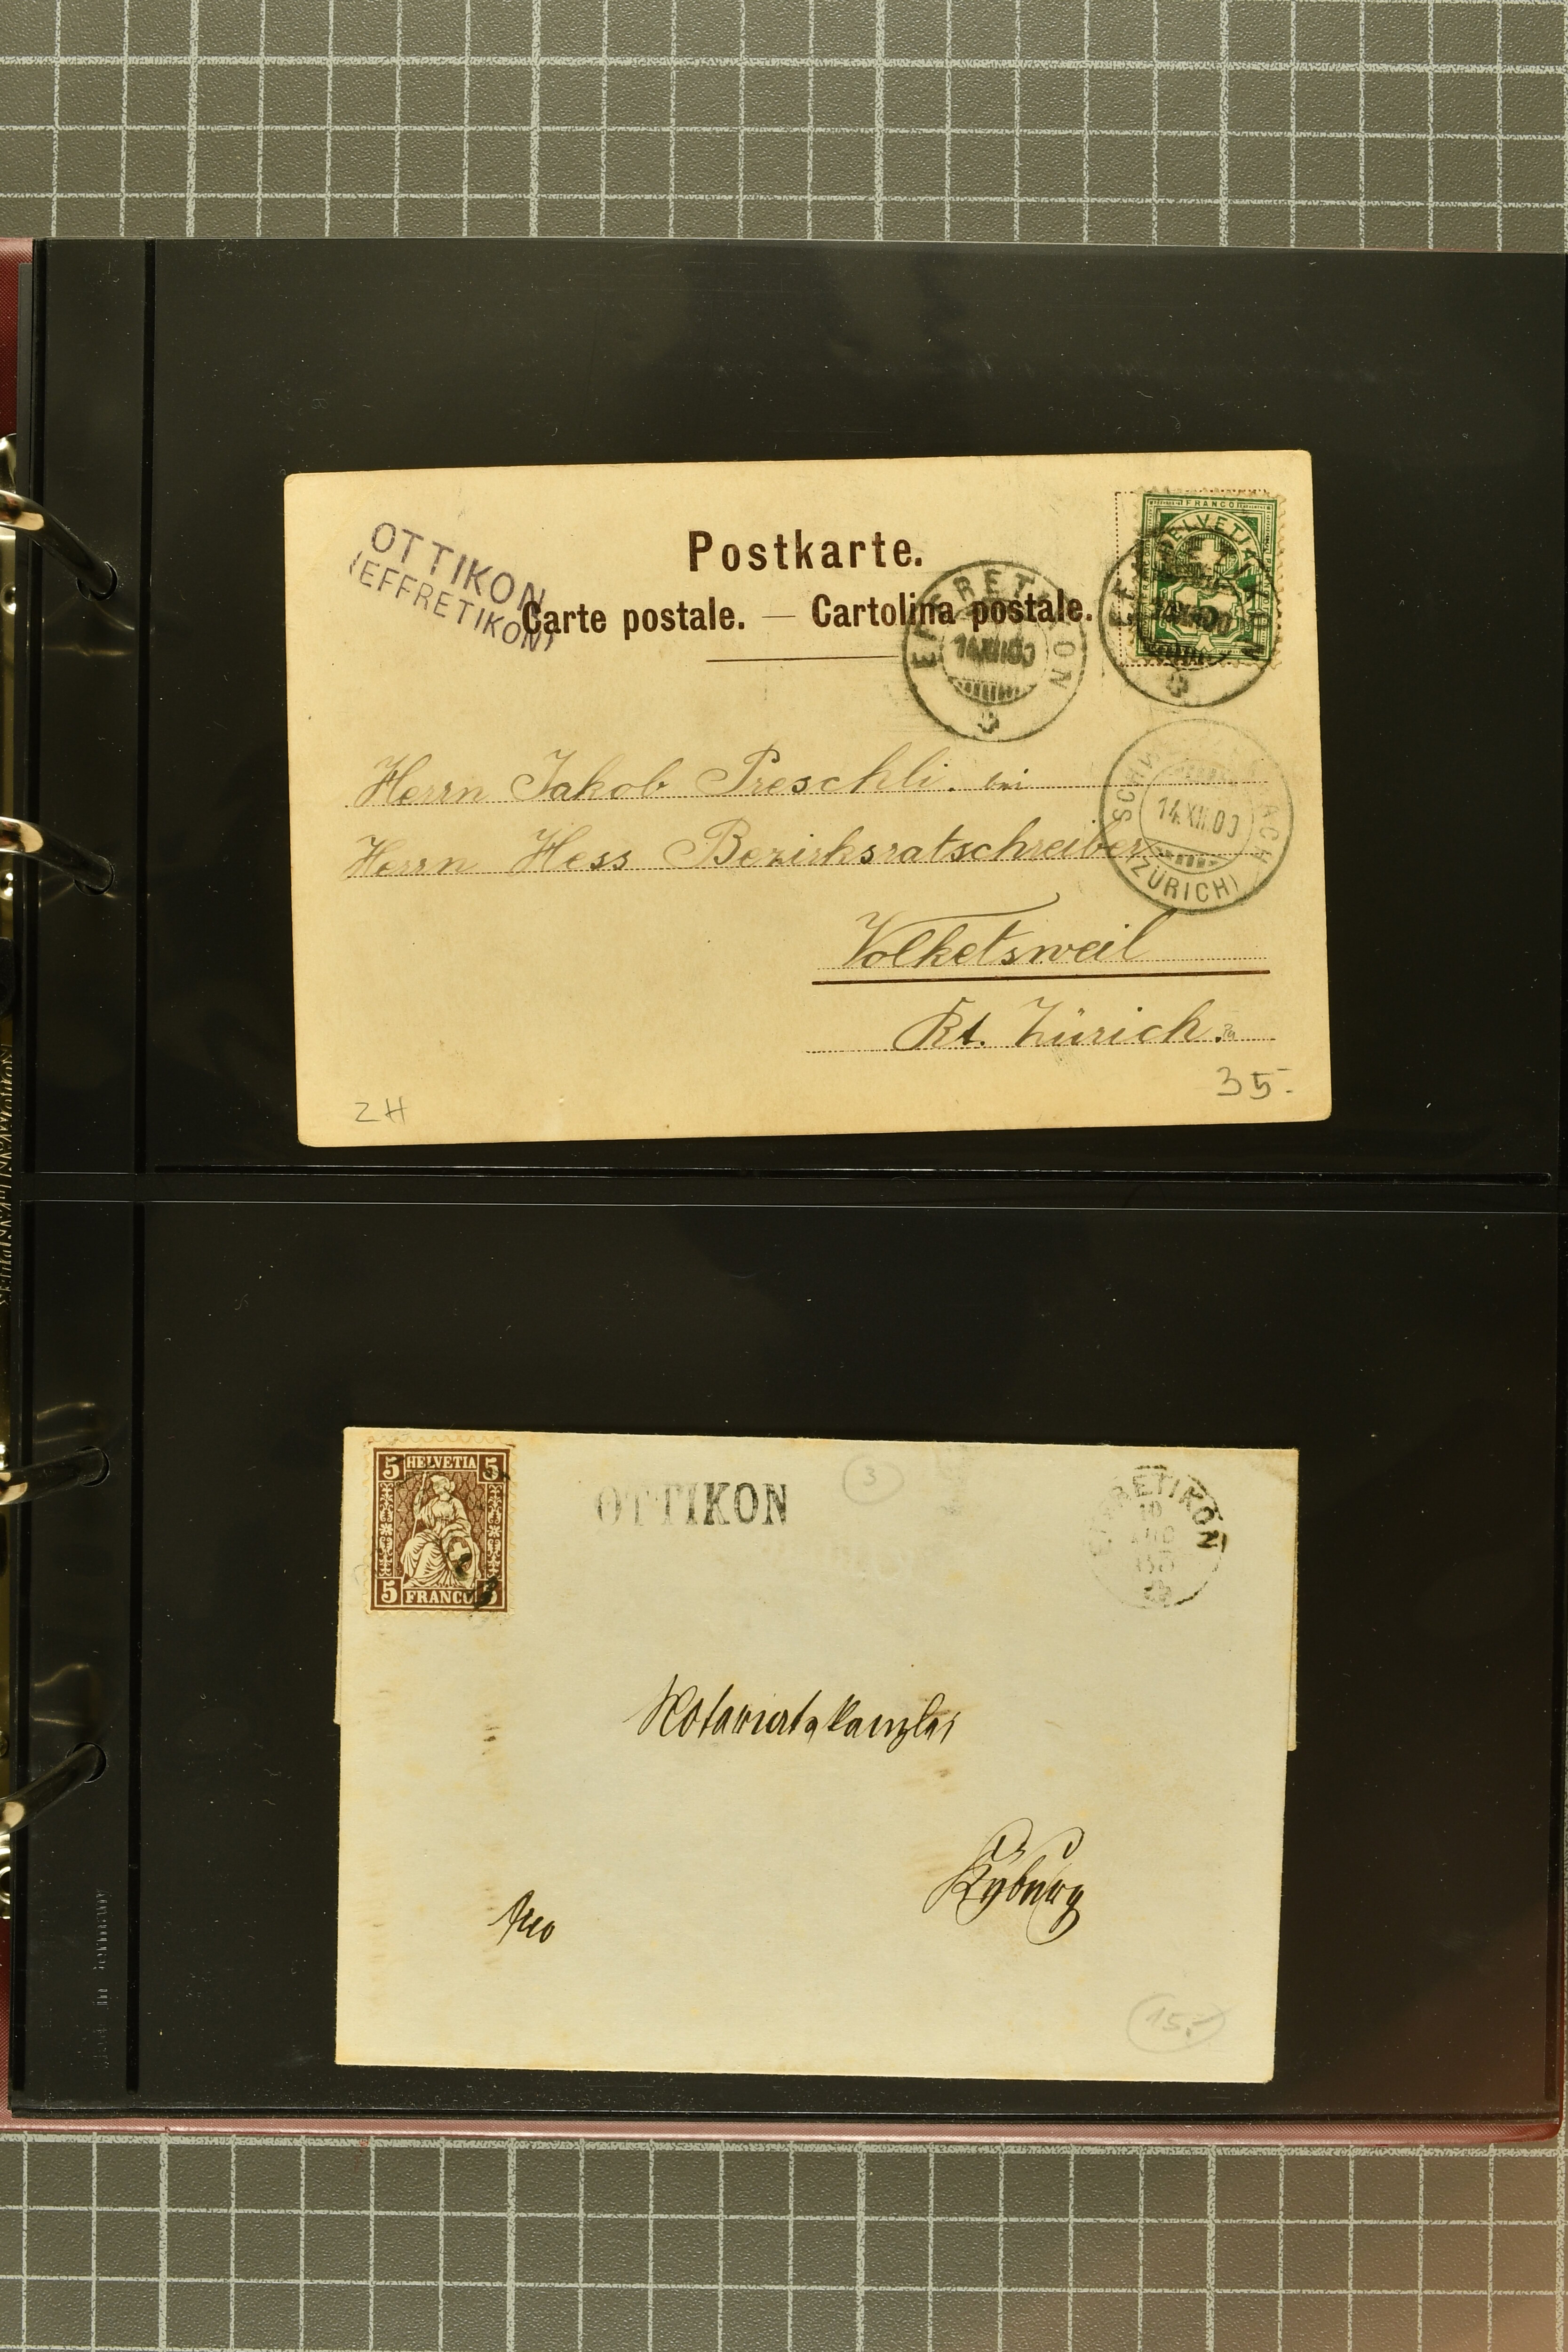 OTTIKON
(EFFRETIKON)
Postkarte.
Carte postale. — Cartolina postale.
EFFRETIKON
14.XII.00
FRANCO
HELVETIA
5
EFFRETIKON
14.XII.00
SCHW ACH
14.XII.00
(ZÜRICH)
Herrn Jakob Preschli. bei
Herrn Hess Bezirksratschreiber
Volketsweil
Kt. Zürich.
35.-
ZH
5 HELVETIA 5
5 FRANCO 5
OTTIKON
3
EFFRETIKON
10
Notariatskanzlei
Kyburg
fco
15.-
made in Germany